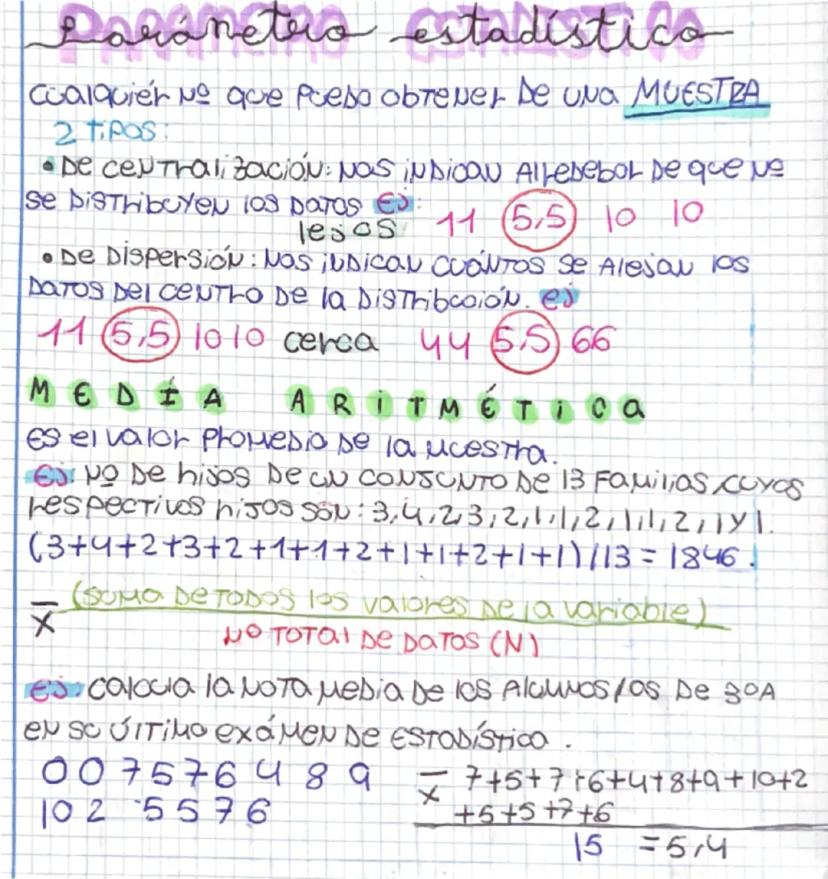 Parámetro estadístico
Cualquiér nº que puedo obtener de una MUESTRA
2 tipos:
• De centralización: nos indican alrededor de que nº
se distribuyen los datos ej:
lejos 11 5,5 10 10
• De dispersión: nos indican cuántos se alejan los
datos del centro de la distribución. ej
11 5,5 10 10 cerca 44 5,5 66
MEDÍA ARITMÉTICA
Es el valor promedio de la muestra.
Ej: Nº de hijos de un conjunto de 13 familias, cuyos
respectivos hijos són: 3,4,2,3,2,1,1,2,1,1,2,1 y 1.
(3+4+2+3+2+1+1+2+1+1+2+1+1)/13 = 1846.
x̄ (suma de todos los valores de la variable)
Nº total de datos (N)
Ej: Calcula la nota media de los alumnos/as de 3ºA
en su último exámen de estadística.
0 0 7 5 7 6 4 8 9
10 2 5 5 7 6
x̄ 7+5+7+6+4+8+9+10+2
+5+5+7+6
15 = 5,4